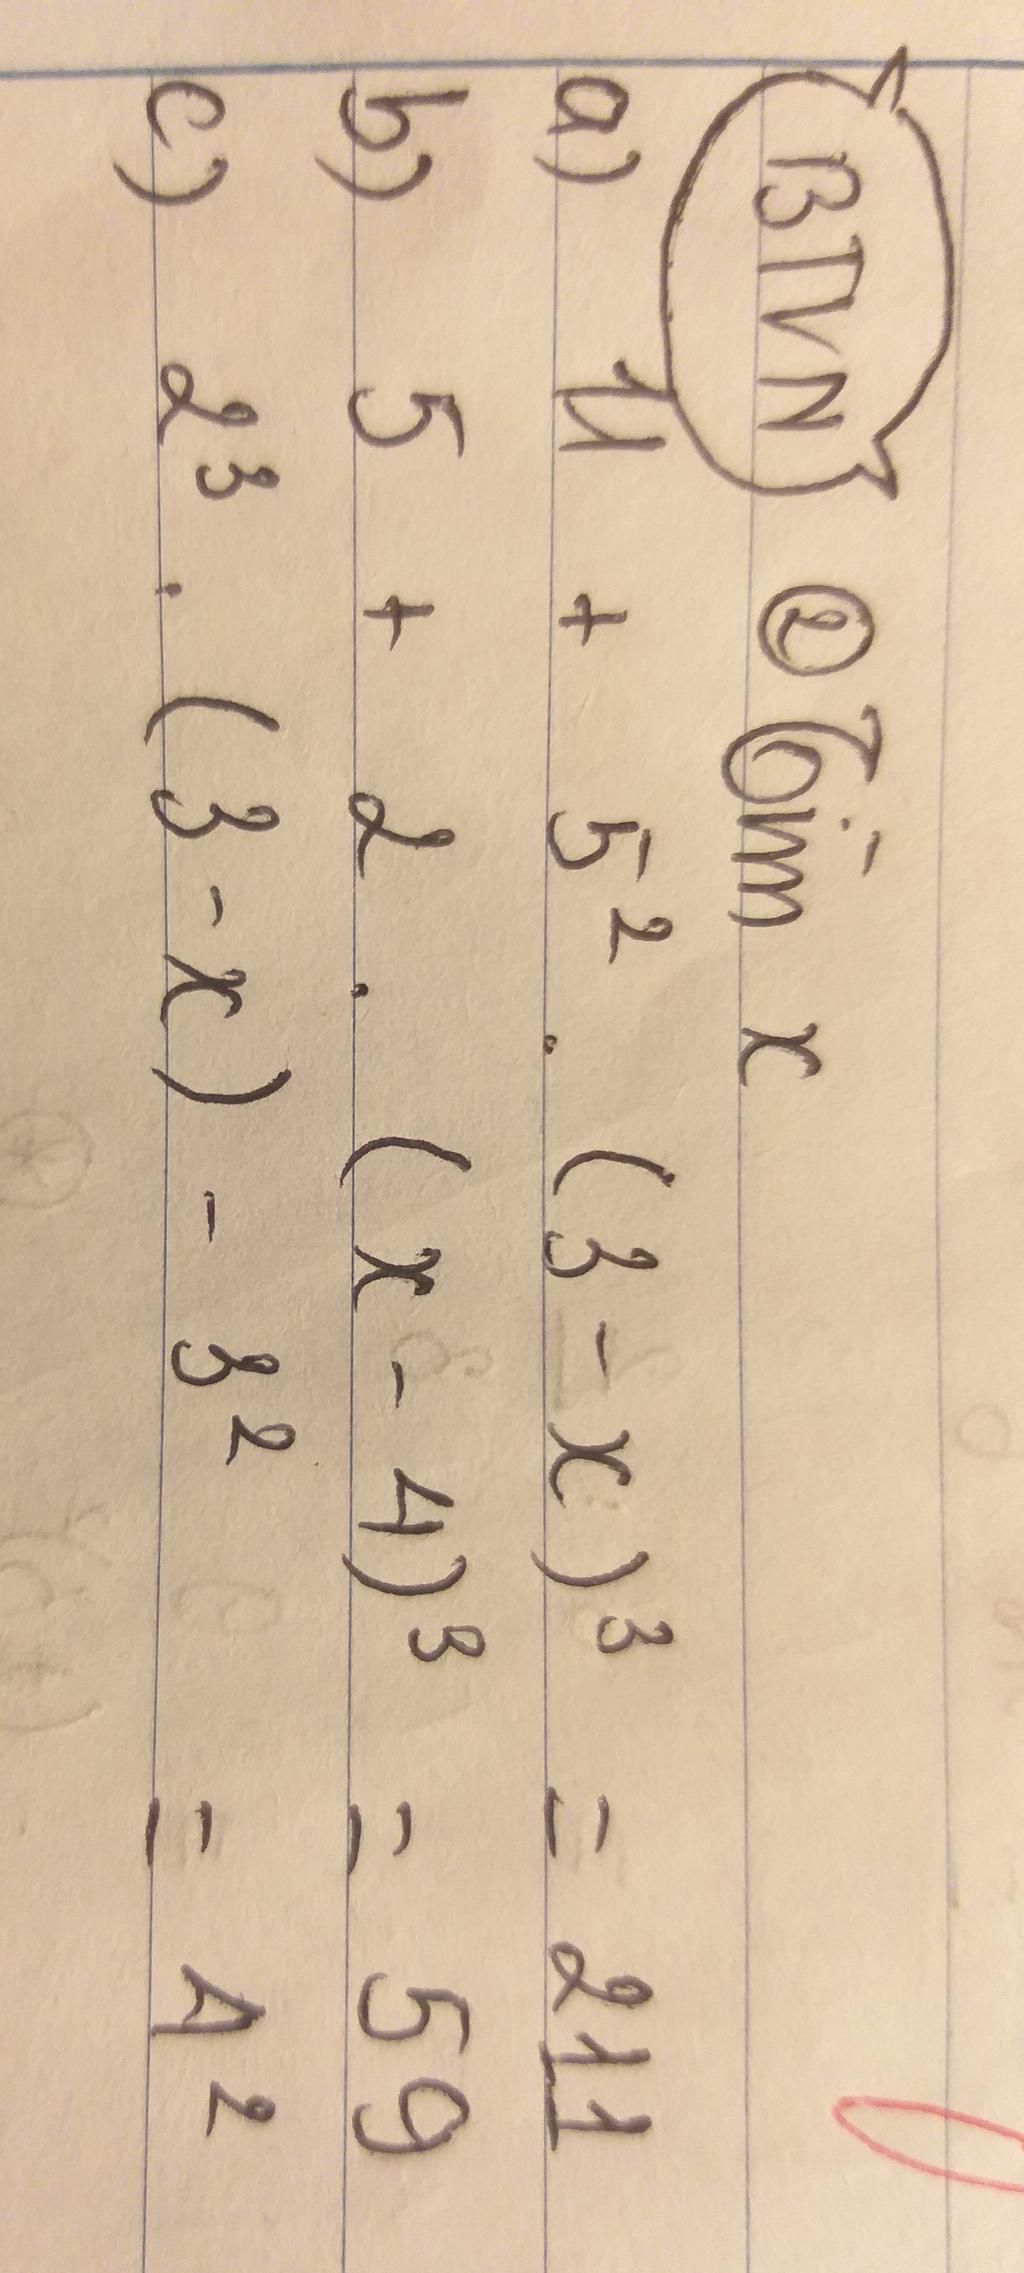 BTVN ② Tìm x
a) 11 + 5² . (3 - x)³ = 211
b) 5 + 2 . (x - 4)³ = 59
c) 2³ . (3 - x) - 3² = 1²